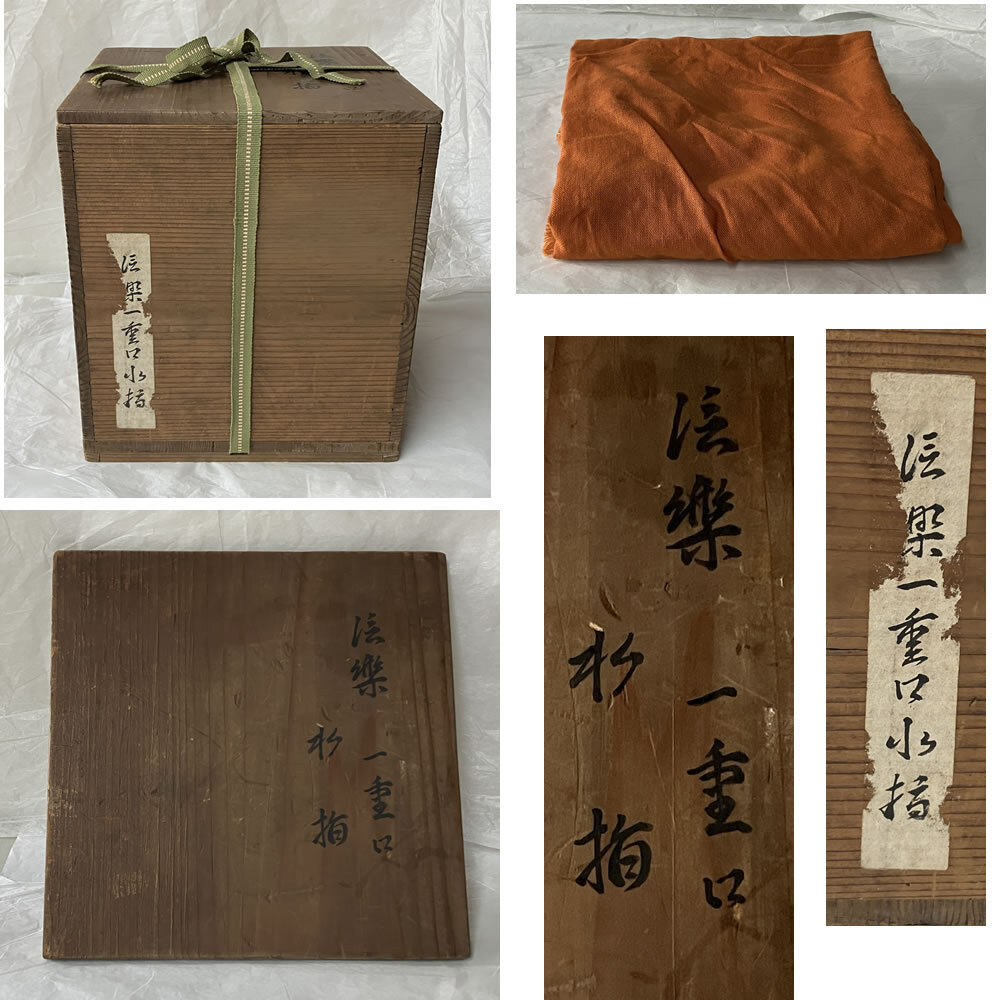 信楽一重口水指
信樂 一重口
水指
信樂 一重口
水指
信楽一重口水指